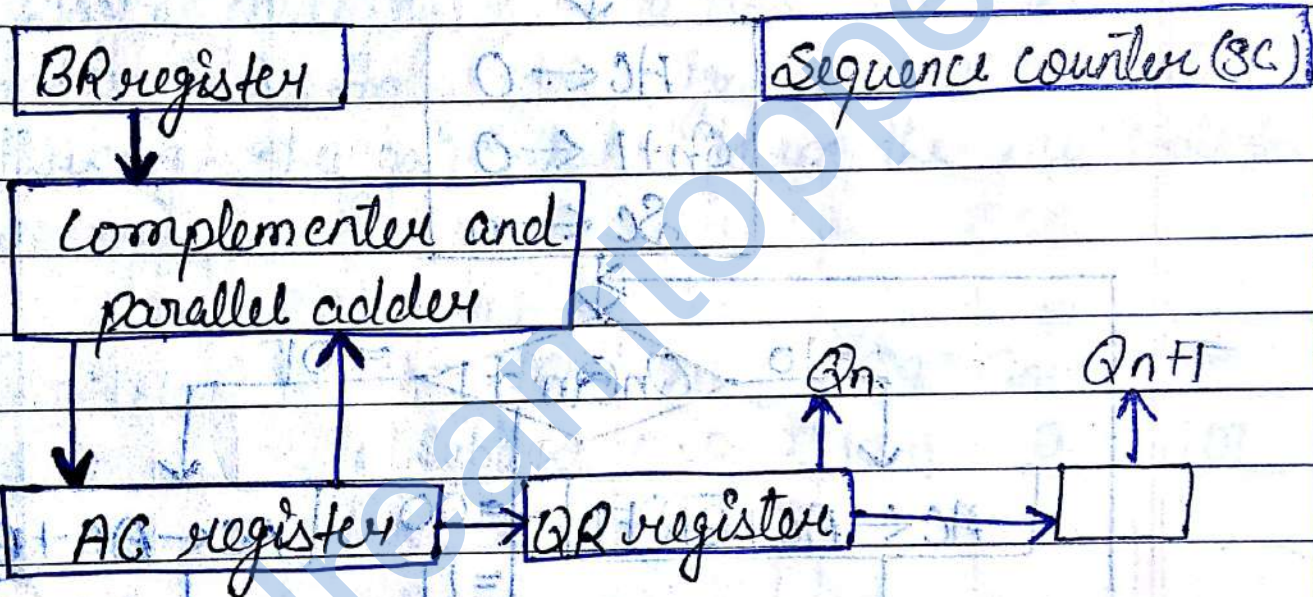 BR register
Sequence counter (SC)
Complementer and
parallel adder
Qn
Qn+1
AC register
QR register
AC ← 0
Qn+1 ← 0
dreamtoppe